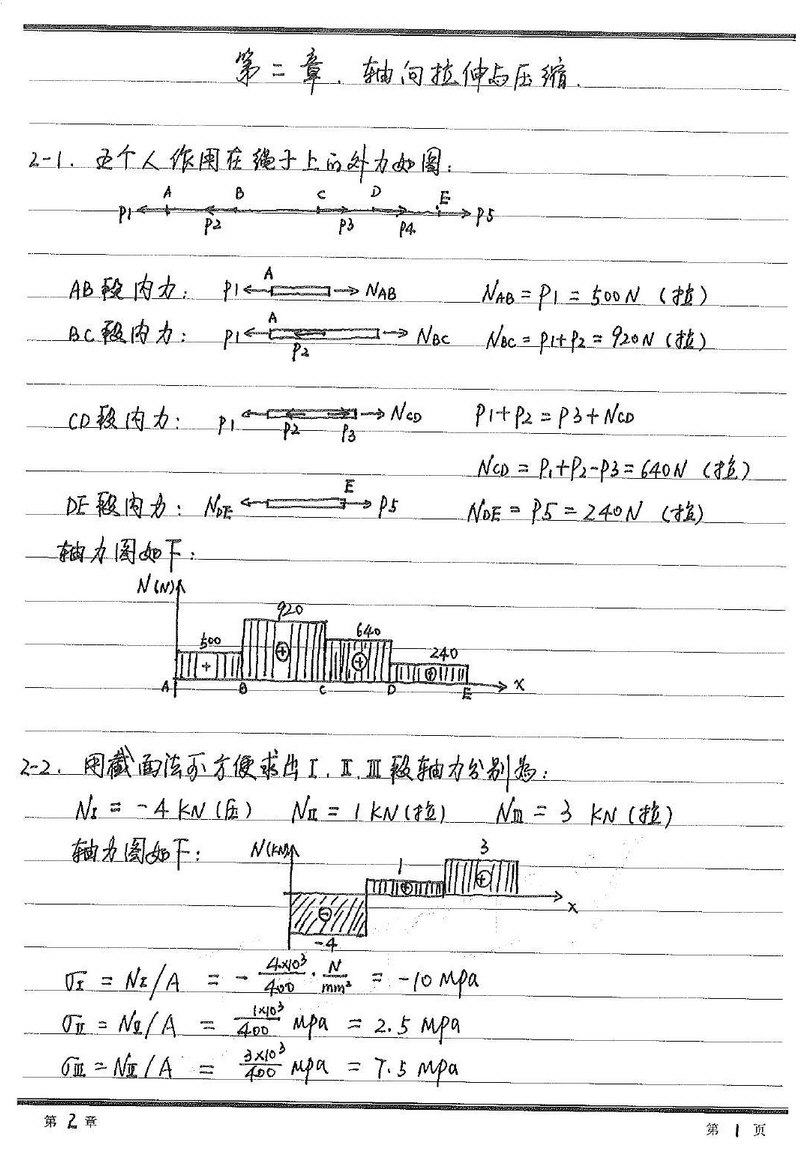 第二章. 轴向拉伸与压缩.
2-1. 五个人作用在绳子上的外力如图:
A B C D E
P1 P2 P3 P4 P5
AB段内力: P1 A NAB NAB = P1 = 500N (拉)
BC段内力: P1 A P2 NBC NBC = P1+P2 = 920N (拉)
CD段内力: P1 P2 P3 NCD P1+P2 = P3+NCD
NCD = P1+P2-P3 = 640N (拉)
DE段内力: NDE E P5 NDE = P5 = 240N (拉)
轴力图如下:
N(N)
500 920 640 240
+ ⊕ ⊕ ⊕
A B C D E x
2-2. 用截面法可方便求出Ⅰ.Ⅱ.Ⅲ段轴力分别为:
NⅠ = -4 KN (压) NⅡ = 1 KN (拉) NⅢ = 3 KN (拉)
轴力图如下: N(KN)
-4 1 3
⊖ ⊕ ⊕ x
σⅠ = NⅠ/A = - 4×10³/400 · N/mm² = -10 Mpa
σⅡ = NⅡ/A = 1×10³/400 Mpa = 2.5 Mpa
σⅢ = NⅢ/A = 3×10³/400 Mpa = 7.5 Mpa
第 2 章
第 1 页